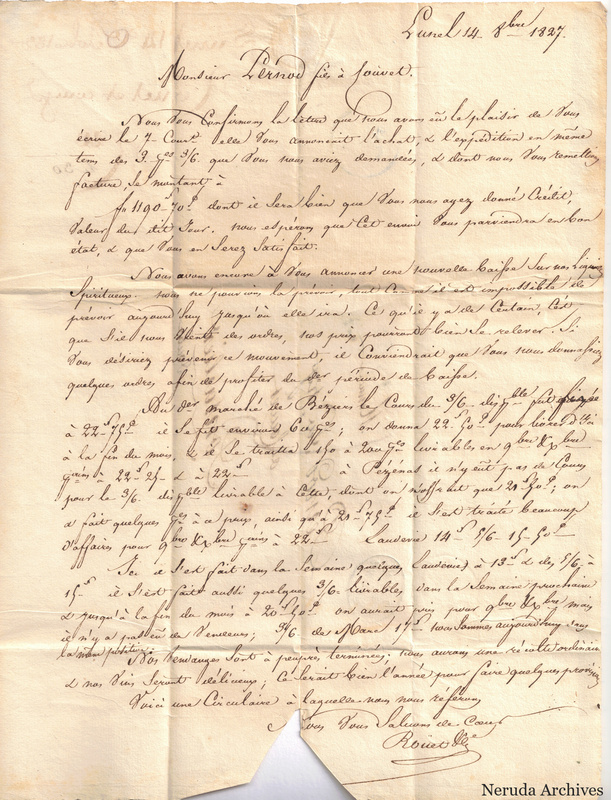 Lunel 14 8bre 1827.
Monsieur Pernod fils à Couvet.
Nous vous Confirmons la lettre que nous avons eû le plaisir de vous
écrire le 7 Cour.t elle vous annonçait l'achat, & l'expédition en même
tems des 3 p.ces 3/6. que vous nous aviez demandées, & dont nous vous remettons
facture, se montant à
f 1190.70 dont il sera bien que vous nous ayez donné Crédit,
valeur du dit Jour. nous espérons que Cet envoi vous parviendra en bon
état, & que vous en serez satisfait.
Nous avons encore à vous annoncer une nouvelle baisse sur nos
Spiritueux. nous ne pouvions la prévoir, tout Comme il est impossible de
prévoir aujourd'huy jusqu'où elle ira. Ce qu'il y a de Certain, C'est
que s'il nous vient des ordres, nos prix pourront bien se relever. Si
vous désiriez prévenir ce mouvement, il Conviendrait que vous nous donnassiez
quelques ordres afin de profiter du der période de baisse.
Au der marché de Béziers le Cours du 3/6 disp.ble fut
à 22f 75 il se fit environ 60 p.ces; on donna 22f 50 pour livrer d'ici
à la fin du mois, & il se traitta 150 à 200 p.ces livrables en 9bre Xbre
à 22f 25 & à 22f à Pézenas il n'y eut pas de Cours
pour le 3/6 disp.ble livrable à Cette, dont on n'offrait que 21f 50; on
a fait quelques p.ces à ce prix, ainsi qu'à 21f 75 il s'est traité beaucoup
d'affaires pour 9bre Xbre à 22f Lauderie 14f 5/6 15 50
Ici il s'est fait dans la Semaine quelques à 13f & des 5/6 à
15f il s'est fait aussi quelques 3/6 livrables, dans la Semaine prochaine
& jusqu'à la fin du mois à 20f 50 on aurait pris pour 9bre Xbre mais
il n'y a pas eû de vendeurs; 3/6 de Marc 17f nous sommes aujourd'huy dans
la même position
Nos vendanges sont à peuprès terminées; nous aurons une récolte ordinaire
& nos vins seront délicieux; Ce serait bien l'année pour faire quelques provisions
Voici une Circulaire à laquelle nous nous référons
Nous vous Saluons de Cœur
Rouet & Cie
Neruda Archives